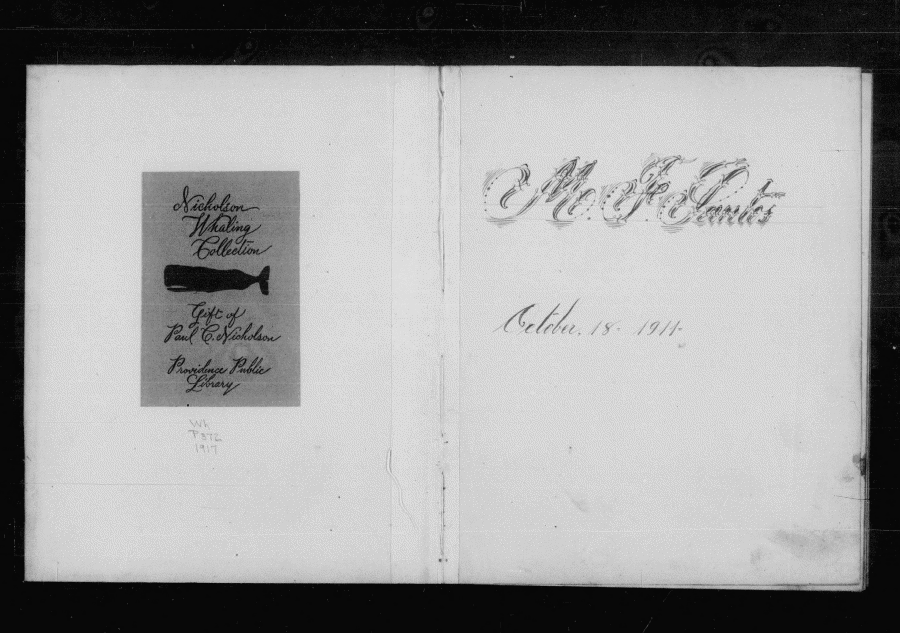 Nicholson
Whaling
Collection
Gift of
Paul C. Nicholson
Providence Public
Library
Wh
1917
M. F. Santos
October. 18- 1911-